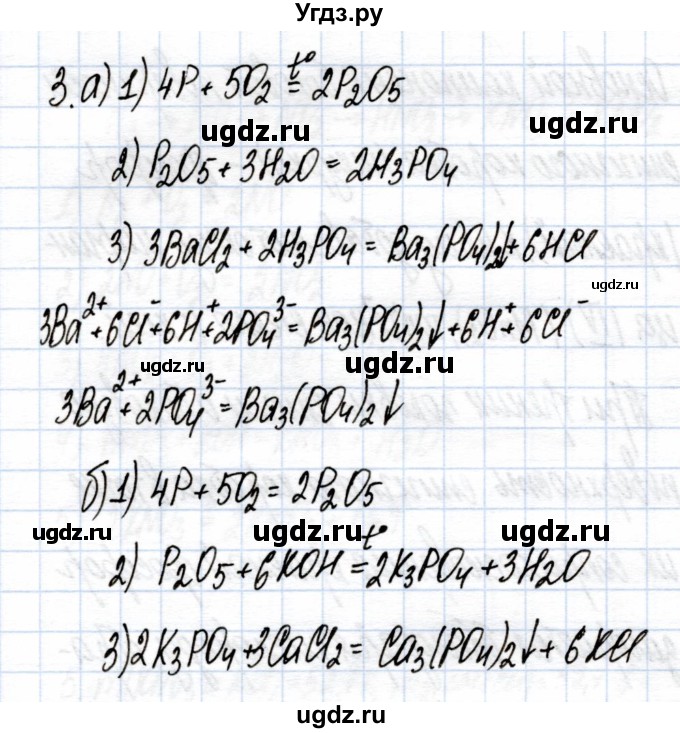 Угдз.ру
3. а) 1) 4P + 5O₂ =^t° 2P₂O₅
ugdz.ru ugdz.ru
2) P₂O₅ + 3H₂O = 2H₃PO₄
ugdz.ru ugdz.ru
3) 3BaCl₂ + 2H₃PO₄ = Ba₃(PO₄)₂↓ + 6HCl
ugdz.ru
3Ba²⁺ + 6Cl⁻ + 6H⁺ + 2PO₄³⁻ = Ba₃(PO₄)₂↓ + 6H⁺ + 6Cl⁻
ugdz.ru ugdz.ru
3Ba²⁺ + 2PO₄³⁻ = Ba₃(PO₄)₂↓
б) 1) 4P + 5O₂ = 2P₂O₅
ugdz.ru ugdz.ru ugdz.ru
2) P₂O₅ + 6KOH =^t° 2K₃PO₄ + 3H₂O
3) 2K₃PO₄ + 3CaCl₂ = Ca₃(PO₄)₂↓ + 6KCl
ugdz.ru ugdz.ru
ugdz.ru